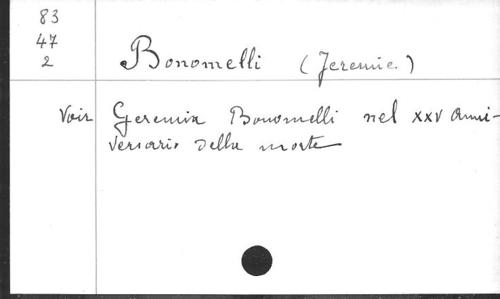 83
47
2
Bonomelli (Jeremie.)
Voir Geremia Bonomelli nel XXV anni-
versario della morte